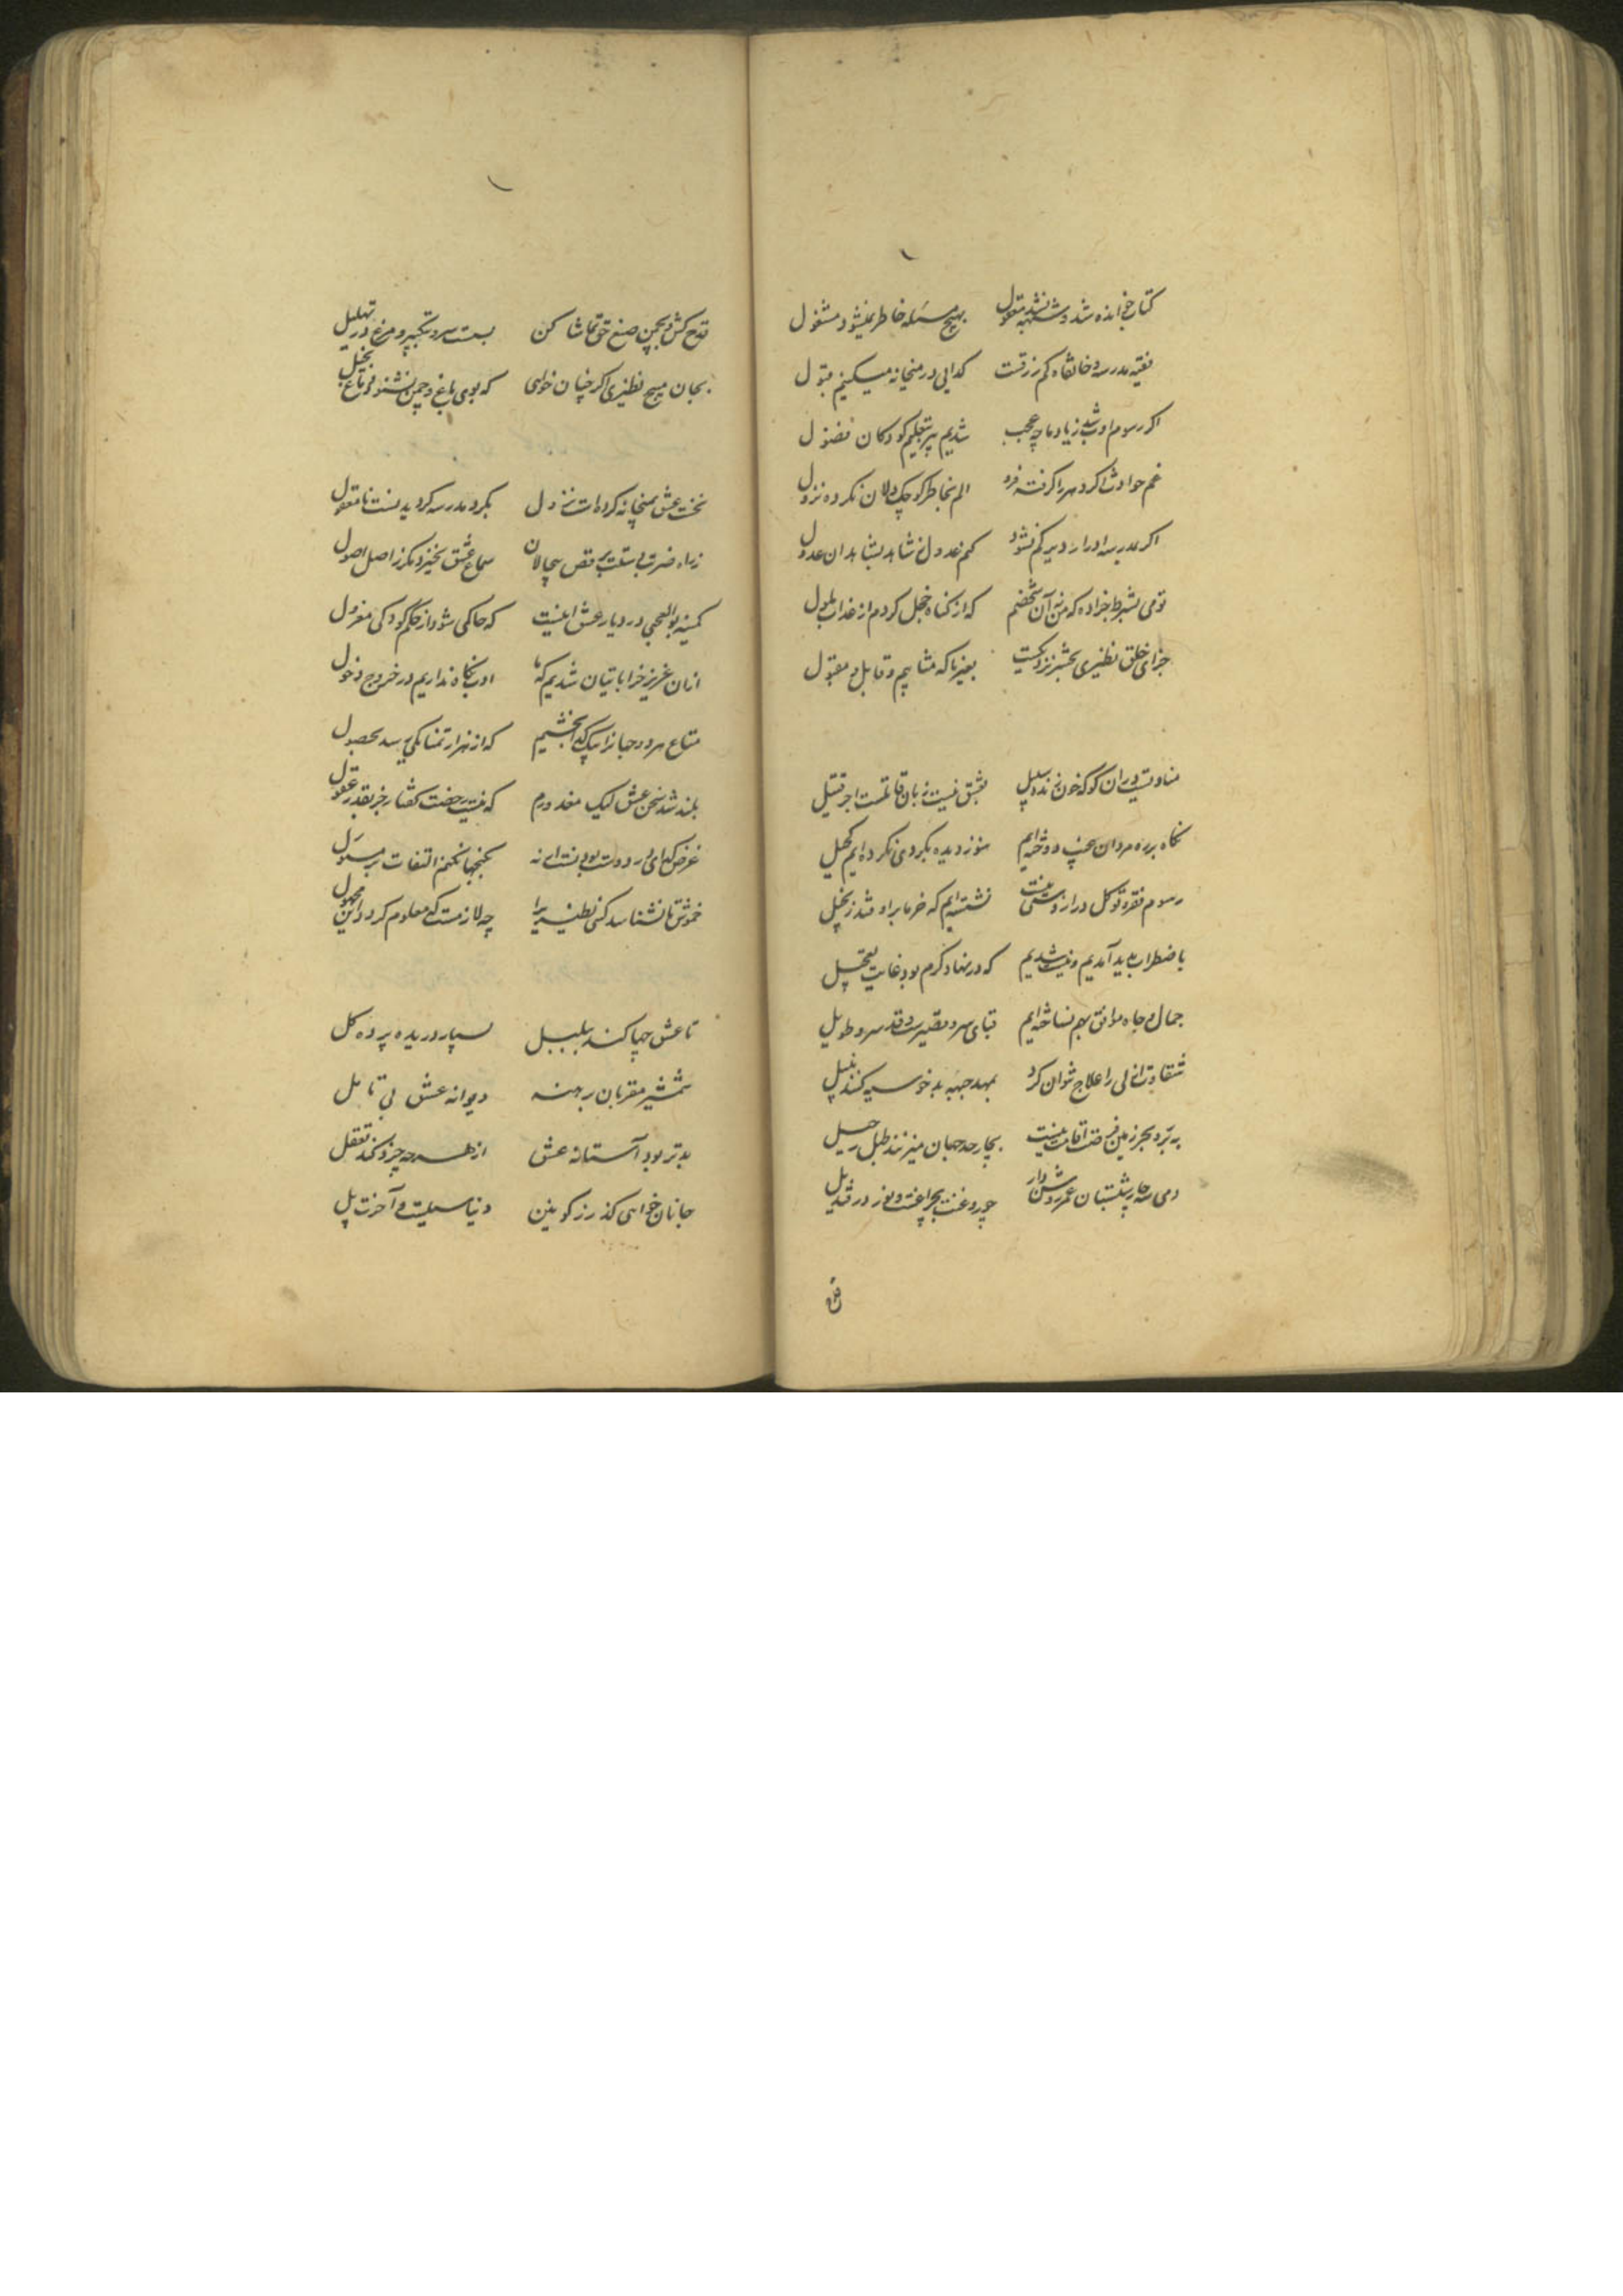 کتاب خوانده شد و شبهه نشد معقول بهیچ مسئله خاطر نمیشود مشغول
فقیه مدرسه و خانقاه کم رزقست گدایی در میخانه میکنیم قبول
اگر رسوم ادب شد ز یاد ما چه عجب شدیم پیر بتعلیم کودکان فضول
غم حوادث اگر دهر را گرفته فرو الم بخاطر کوچک دلان نکرده نزول
اگر بمدرسه ادرار دیر کم نشود کم عدول شاهد بشاهدان عدول
تو می بشرط جزا ده که من نه آن شخصم که از گناه خجل گردم از عذاب ملول
جزای خلق نظیری بحشر نزدیکست بغیر ما که مثابیم و قابل و مقبول
که خون زنده سبیل بعشق نیست زبان قاتلست اجر قتیل
نگاه بر ره مردان دوخته‌ایم هنوز دیده بگردی نکرده‌ایم کحیل
رسوم فقر و توکل درازدستی نیست نشسته‌ایم که خرما براوفتد ز نخیل
باضطراب پدید آمدیم و نیست شدیم که در نهاد کرم بود غایت تعجیل
جمال و جاه موافق بهم نساخته‌ایم قبای سرو قصیرست و قد سرو طویل
شقاوت ازلی را علاج نتوان کرد بمهد جبهه بدخو سیه کنند بنیل
به بر و بحر زمین فرصت اقامت نیست بچار حد جهان میزنند طبل رحیل
دمی سه چار شبستان عمر روشن دار چو روغنت بچراغست و نور در قندیل
قدح کش و بچمن صنع حق تماشا کن بست سرو بتکبیر و مرغ در تهلیل
بجان مسیح نظیری اگر چنان خواهی که بوی باغ و چمن نشنود دماغ بخیل
نخست عشق بمیخانه کرده است نزول بگرد مدرسه گردیدنست نامعقول
ز راه ضرب بی‌سبب رقص بیحالان سماع عشق نخیزد مگر ز اصل اصول
کمینه بوالعجبی در دیار عشق اینست که حاکمی شود از حکم کودکی معزول
از آن عزیز خراباتیان شدیم که ما ادب نگاه نداریم در خروج و دخول
متاع هر دو جهان را بیک گدا بخشیم که از هزار تمنا یکی رسد بحصول
بلند شد سخن عشق لیک معذورم که نیست رخصت گفتار جز بقدر عقول
غرض گدای در دوست بودنست ار نه بگنجها نکنم التفات بر مسئول
خموش تا نشناسد کسی نظیری را چه لازمست که معلوم گردد این مجهول
تا عشق چها کند ببلبل بسیار دریده پرده گل
شمشیر مقربان برهنه دیوانه عشق بی تامل
بدتر بود آستانه عشق از هر چه خرد کند تعقل
جانان خواهی گذر ز کونین دنیا سیلست و آخرت پل